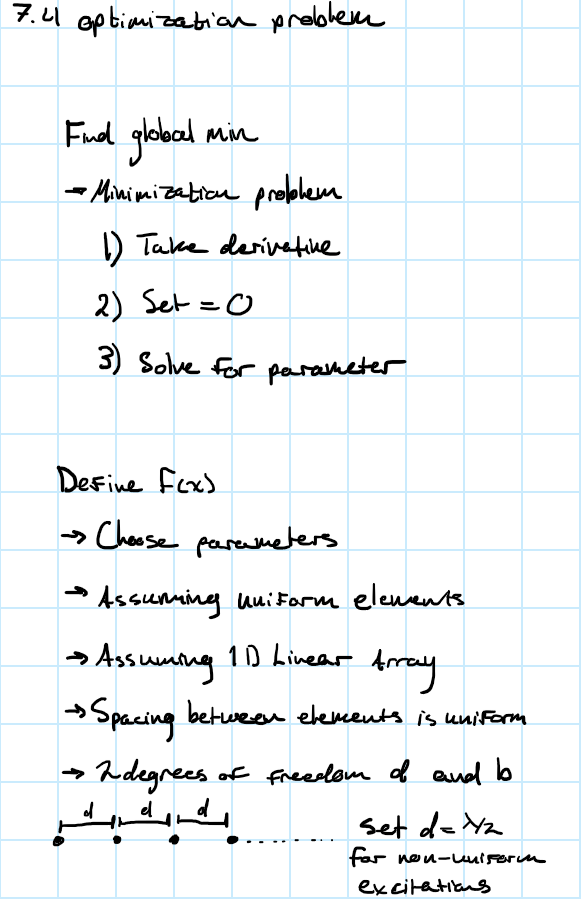 7.4 optimization problem
Find global min
→ Minimization problem
1) Take derivative
2) Set = 0
3) Solve for parameter
Define F(x)
→ Choose parameters
→ Assuming uniform elements
→ Assuming 1D Linear Array
→ Spacing between elements is uniform
→ 2 degrees of freedom d and b
d d d
set d = λ/2
for non-uniform
excitations